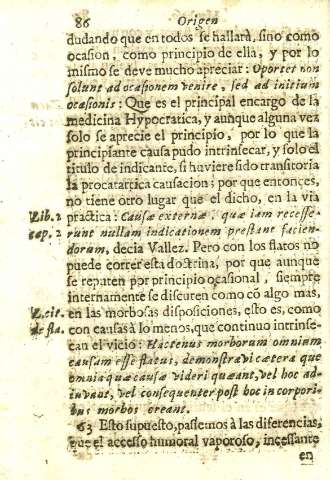 86 Origen
dudando que en todos se hallarà, sino como
ocasion, como principio de ella, y por lo
mismo se deve mucho apreciar: Oportet non
solunt ad ocasionem venire, sed ad initium
ocasionis: Que es el principal encargo de la
medicina Hypocratica, y aunque alguna vez
solo se aprecie el principio, por lo que la
principiante causa pudo intrinsecar, y solo el
titulo de indicante, si huviere sido transitoria
la procatartica causacion; por que entonces,
no tiene otro lugar que el dicho, en la via
Lib. 2 practica: Causæ externæ, quæ iam recesse-
cap. 2 runt nullam indicationem prestant facien-
dorum, decia Vallez. Pero con los flatos no
puede correr esta doctrina, por que aunque
se reputen por principio ocasional, siempre
internamente se discuren como cõ algo mas,
L. cit. en las morbosas disposiciones, esto es, como
de fla. con causas à lo menos, que continuo intrinse-
can el vicio: Hactenus morborum omnium
causam esse flatus, demonstravi cætera que
omnia quæ causæ videri queant, vel hoc ad-
iuvant, vel consequenter post hoc in corpori-
bus morbos creant.
63 Esto supuesto, passemos à las diferencias,
que el accesso humoral vaporoso, incessante
en